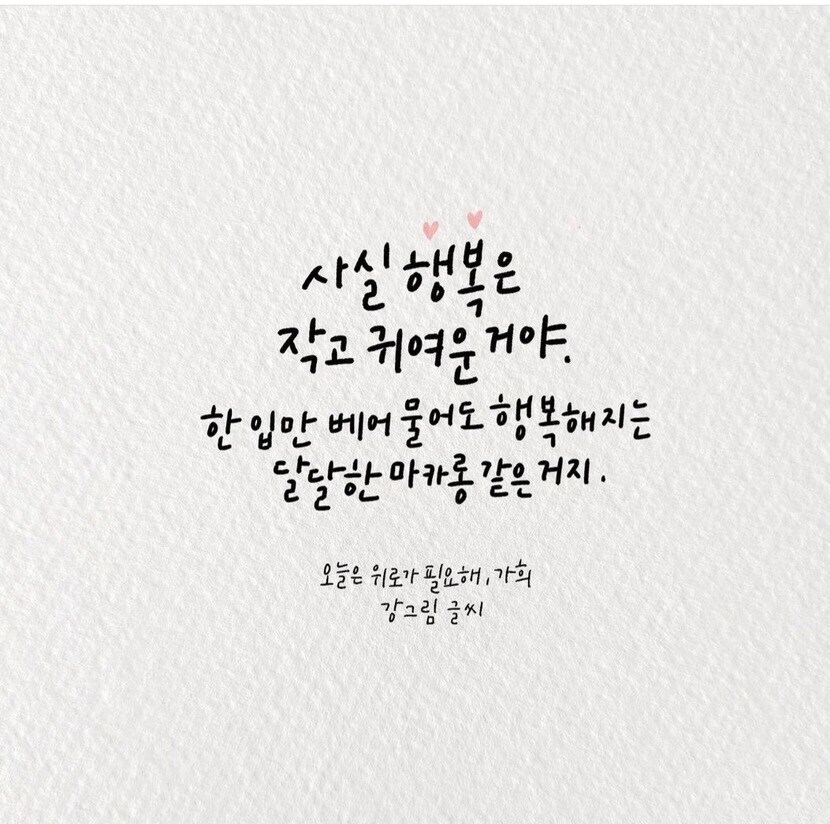 사실 행복은
작고 귀여운 거야.
한 입만 베어 물어도 행복해지는
달달한 마카롱 같은 거지.
오늘은 위로가 필요해, 가희
강그림 글씨